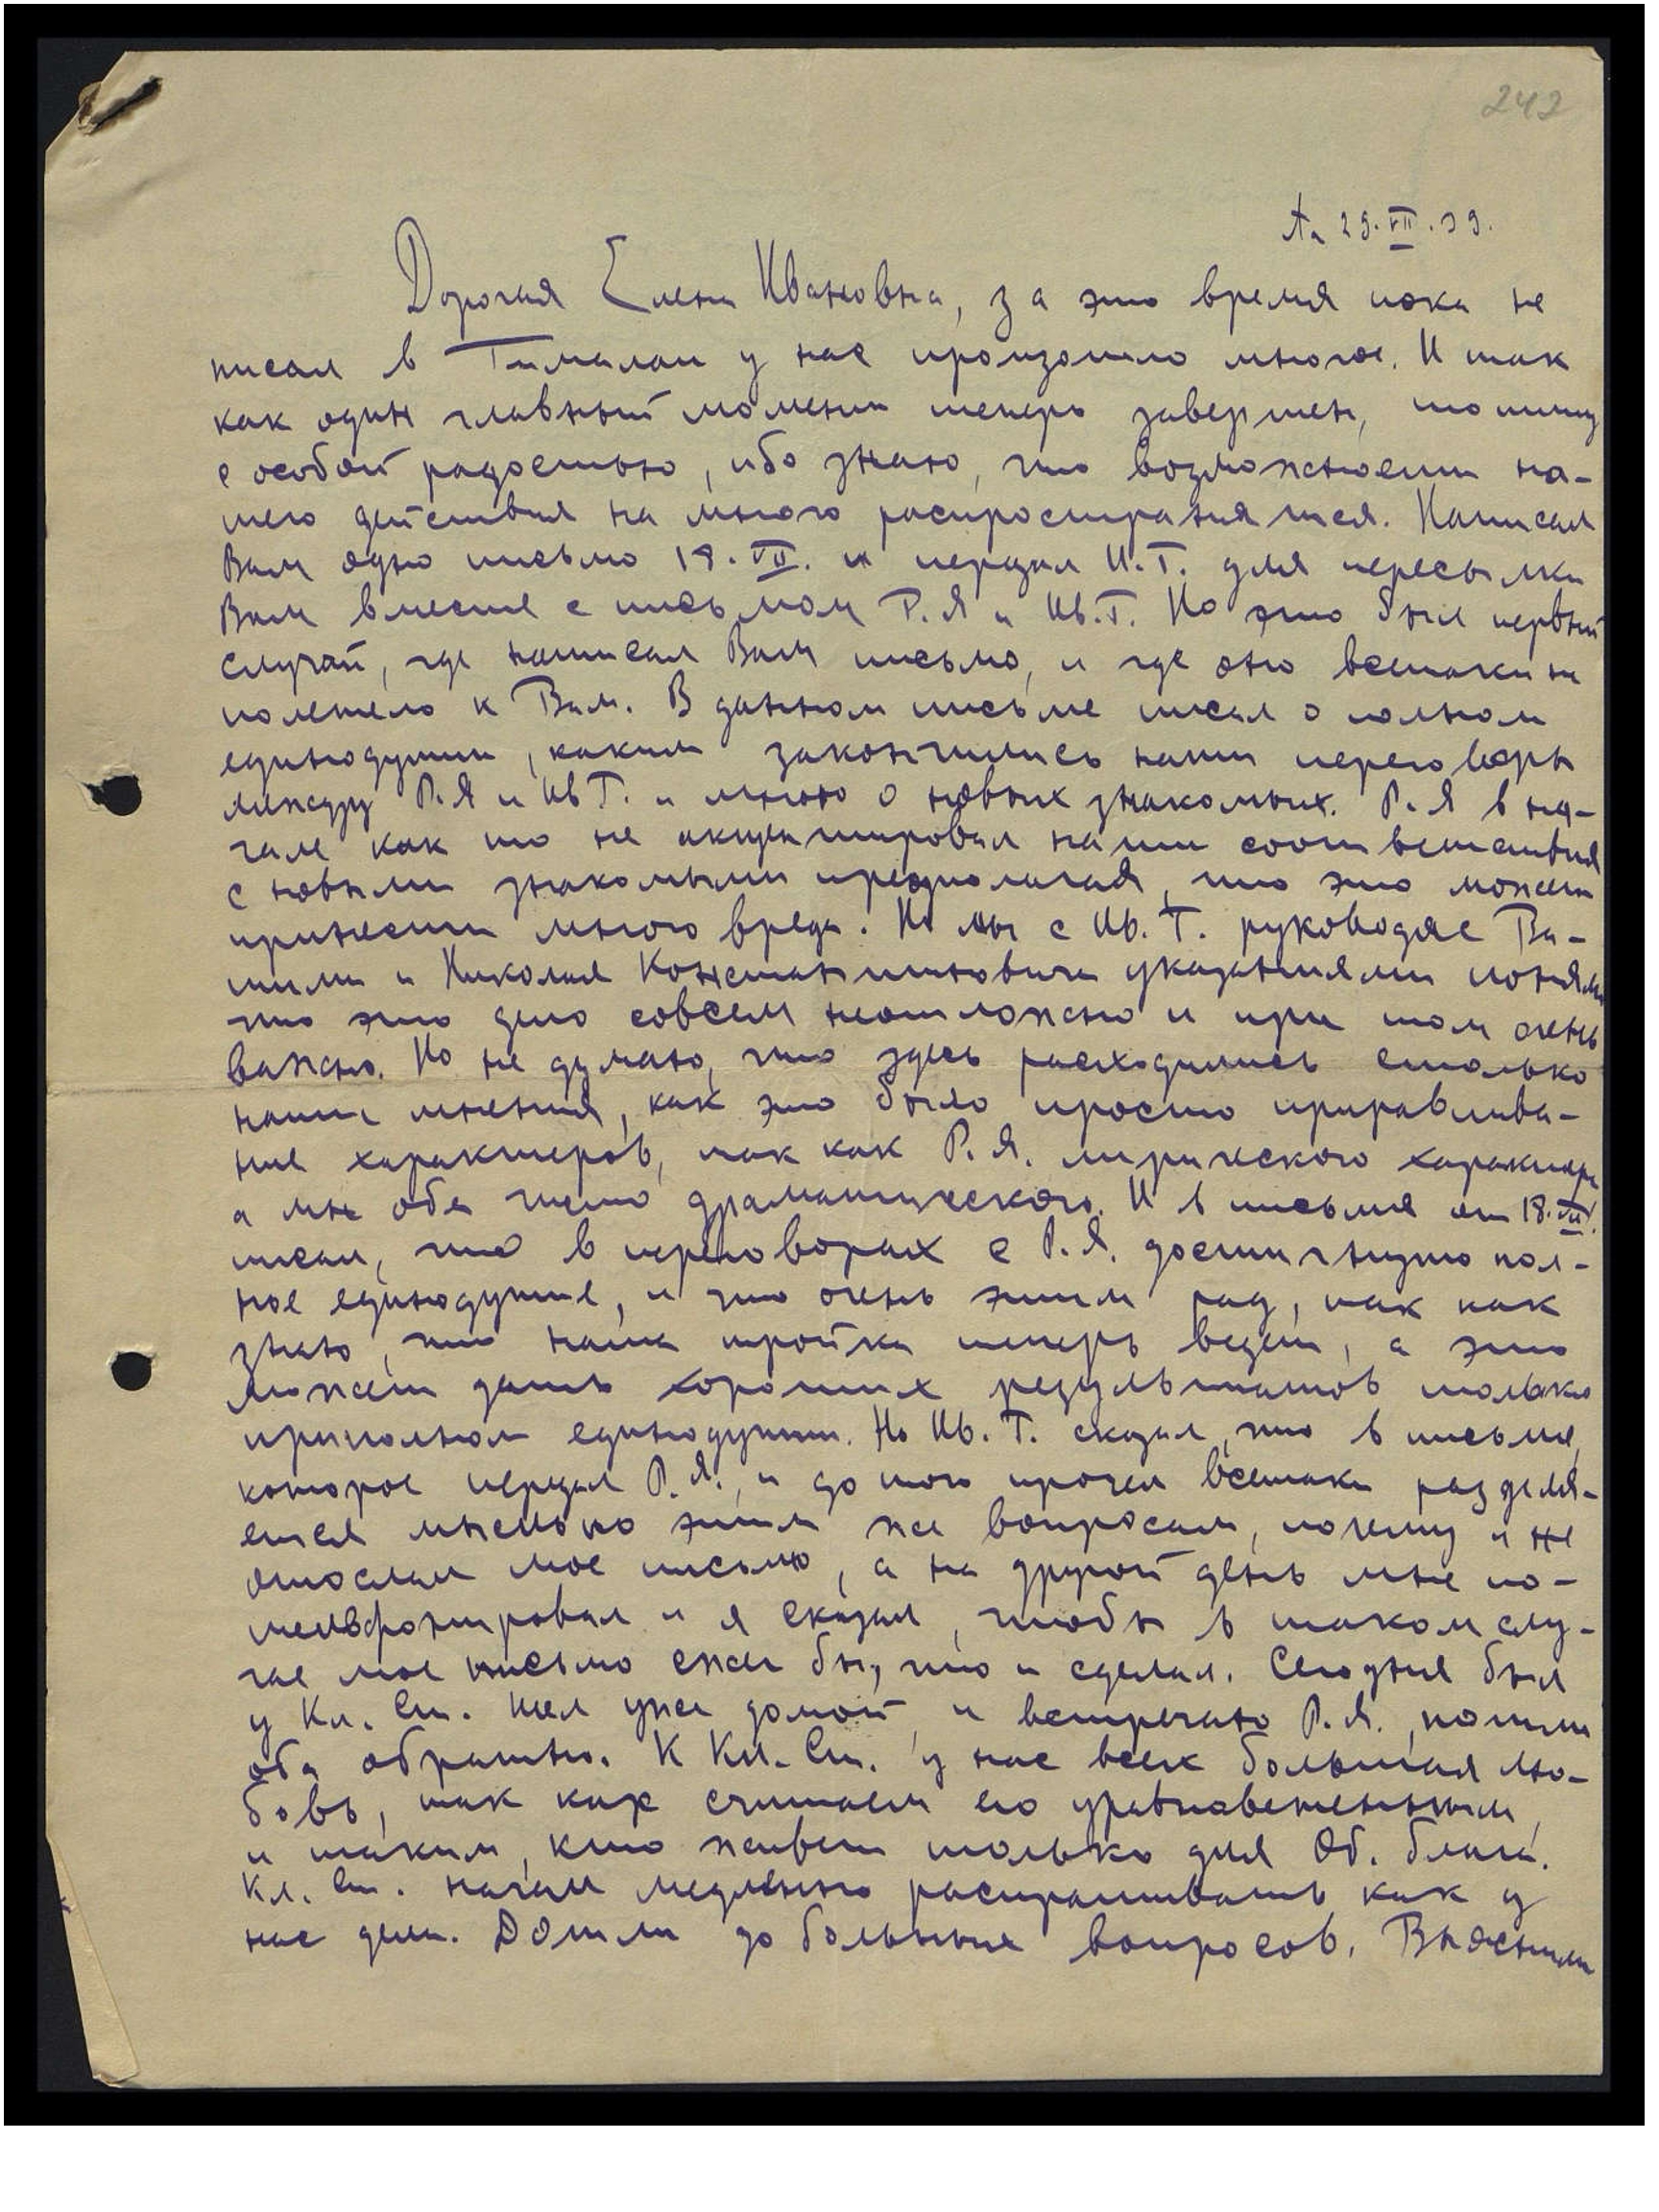 242
29.VII.39.
Дорогая Елена Ивановна, за это время пока не
писал в Гималаи у нас произошло многое. И так
как один главный момент теперь завершен, то пишу
с особой радостью, ибо знаю, что возможности на-
шего действия на много распространятся. Написал
Вам одно письмо 18.VII. и передал И.Г. для пересылки
Вам вместе с письмом Р.Я и Ив.Г. Но это был первый
случай, где написал Вам письмо, и где оно всетаки не
полетело к Вам. В данном письме писал о полном
единодушии, каким закончились наши переговоры
между Р.Я и Ив Г. и мною о новых знакомых. Р.Я в на-
чале как то не акцентировал наши соответствия
с новыми знакомыми предполагая, что это может
принести много вреда. Но мы с Ив. Г. руководясь Ва-
шими и Николая Константиновича указаниями поняли
что это дело совсем неотложно и при том очень
важно. Но не думаю, что здесь расходились столько
наши мнения, как это было просто приравнива-
ние характеров, так как Р.Я. лирического характера
а мы оба чисто драматического. И в письме от 18.VII.
писал, что в переговорах с Р.Я. достигнуто пол-
ное единодушие, и что очень этим рад, так как
знаю, что наша тройка теперь ведет, а это
может дать хороших результатов только
приполном единодушии. Но Ив. Г. сказал, что в письме,
которое передал Р.Я., и до того прочел всетаки разделя-
ется мнение по этим же вопросам, почему и не
отослал мое письмо, а на другой день мне по-
телефонировал и я сказал, чтобы в таком слу-
чае мое письмо сжег бы, что и сделал. Сегодня был
у Кл. Ст. Шел уже домой и встречаю Р.Я., пошли
оба обратно. К Кл. Ст. у нас всех большая лю-
бовь, так как считаем его уравновешенным,
и таким, кто живет только для Об. блага.
Кл. Ст. начал медленно распрашивать как у
нас дела. Дошли до больных вопросов. Выяснили